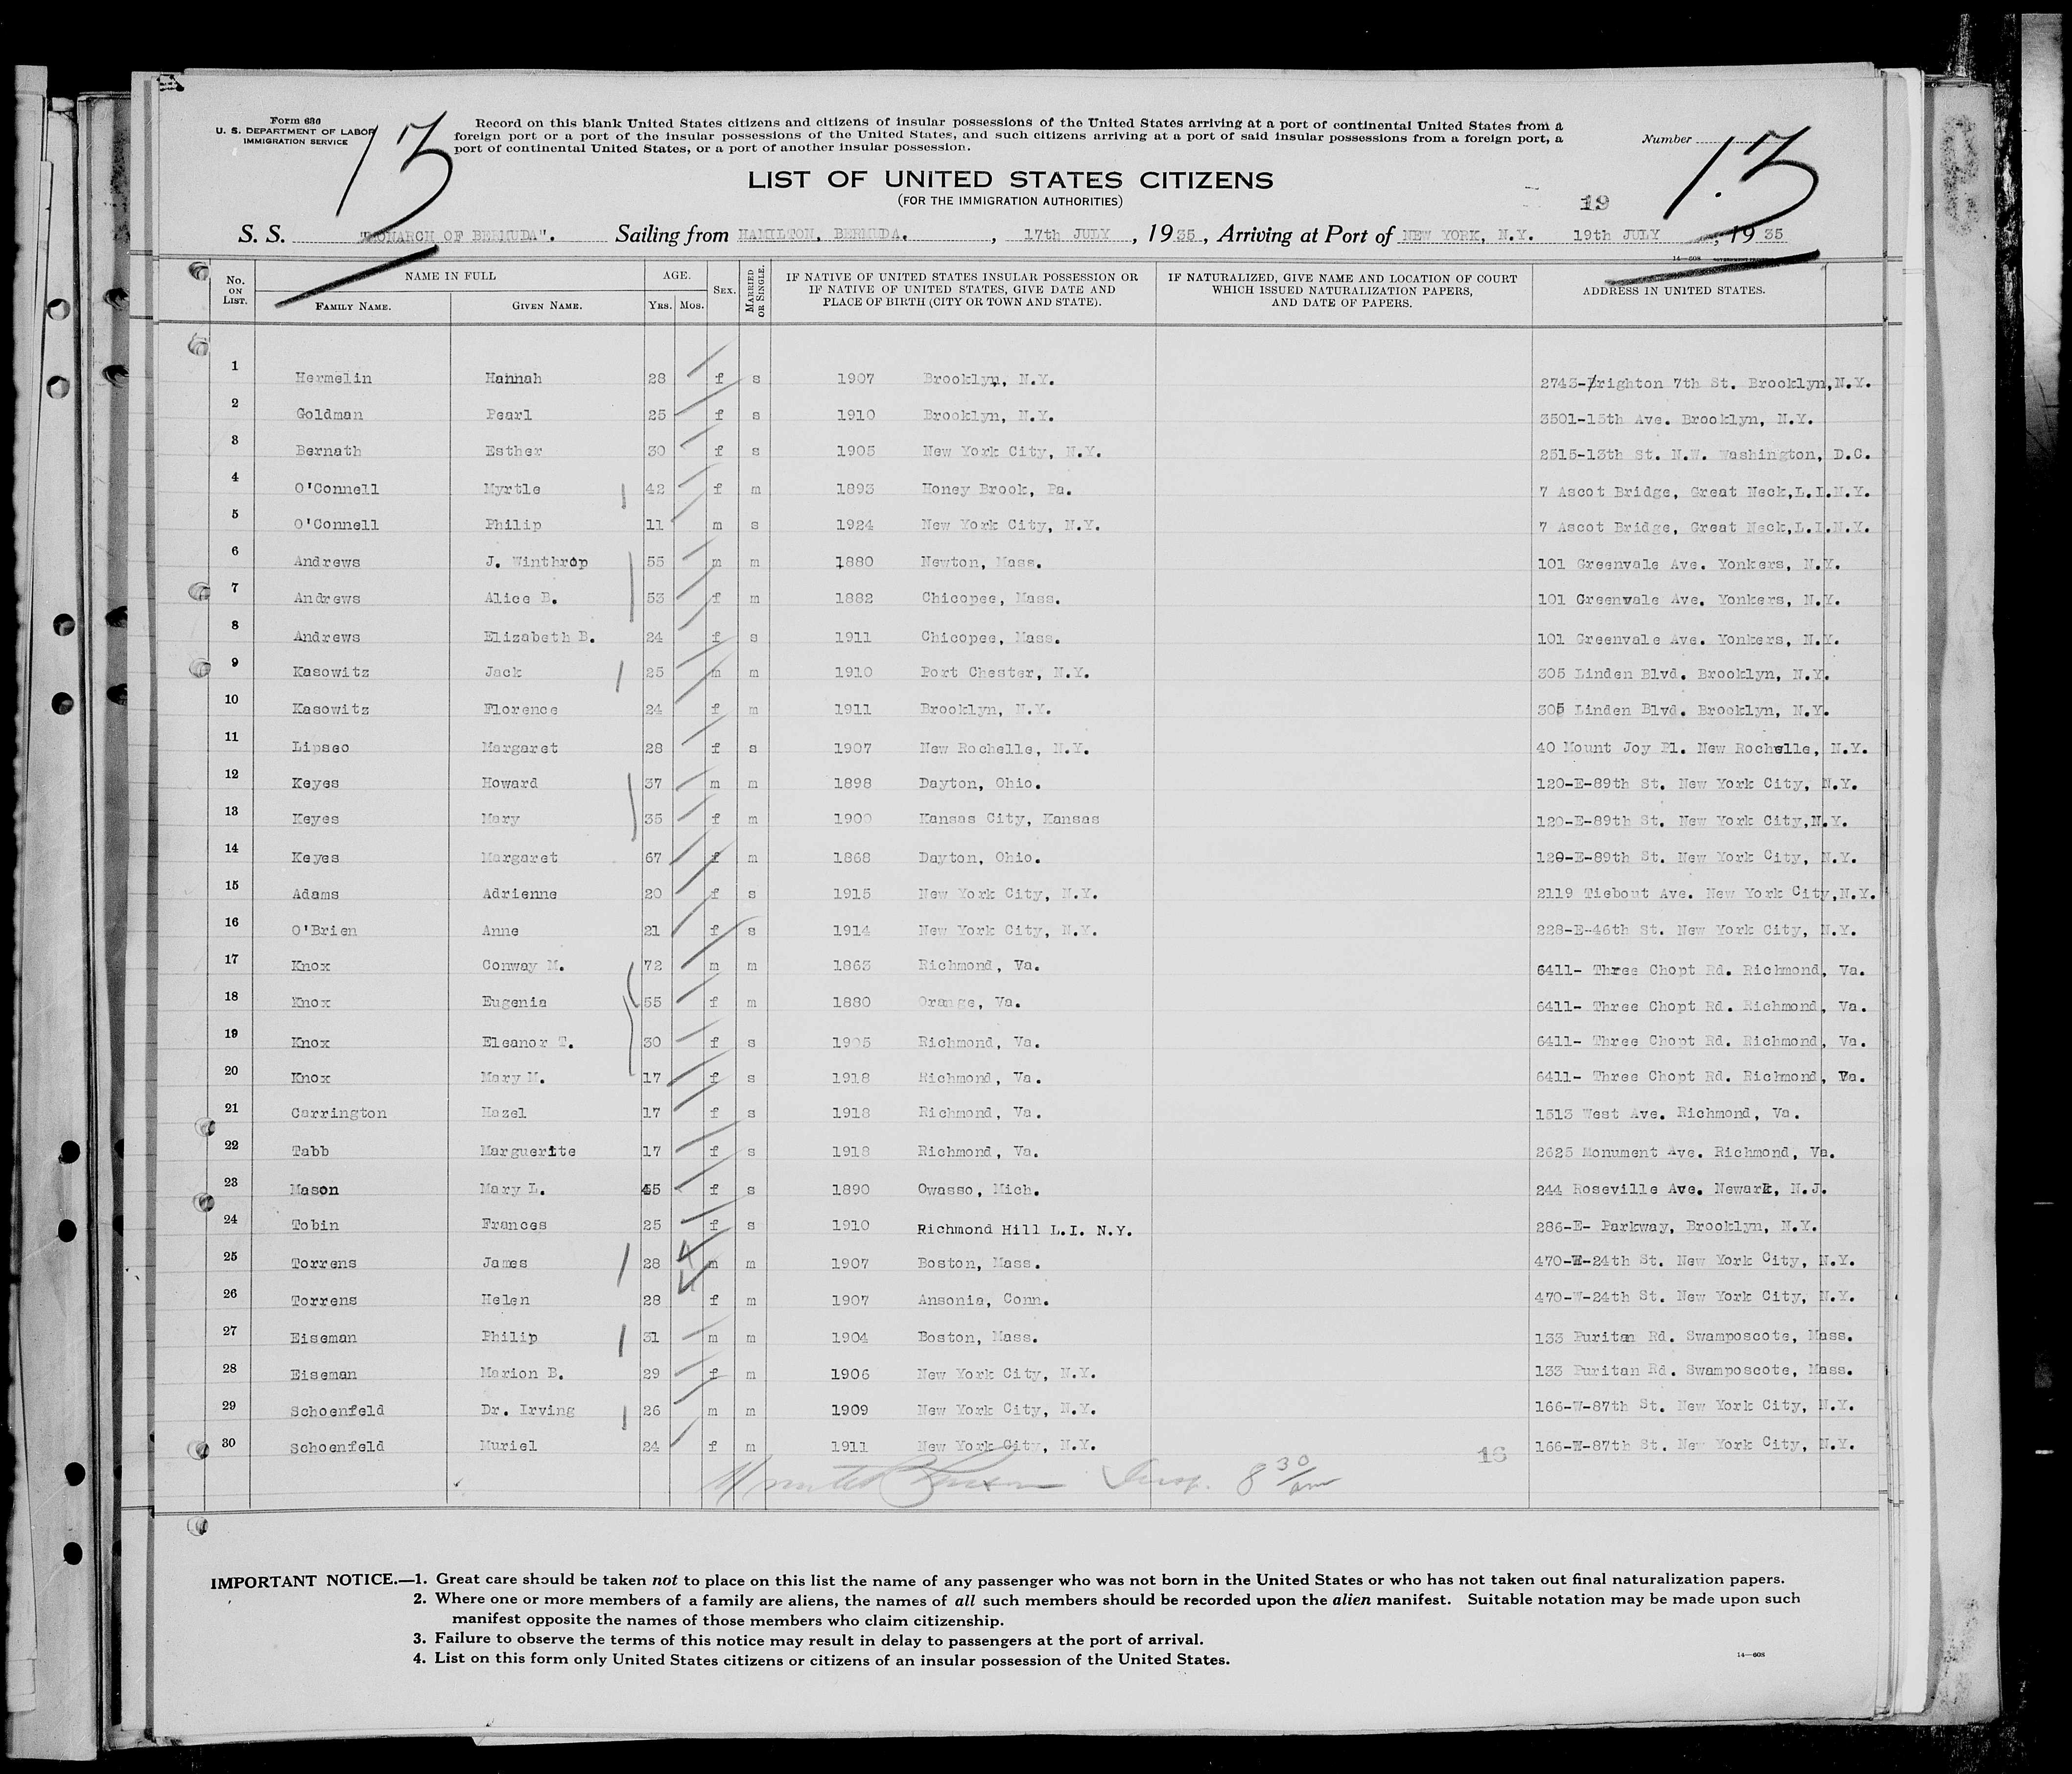 Form 630
U. S. DEPARTMENT OF LABOR
IMMIGRATION SERVICE
13
Record on this blank United States citizens and citizens of insular possessions of the United States arriving at a port of continental United States from a
foreign port or a port of the insular possessions of the United States, and such citizens arriving at a port of said insular possessions from a foreign port, a
port of continental United States, or a port of another insular possession.
Number 13
LIST OF UNITED STATES CITIZENS
(FOR THE IMMIGRATION AUTHORITIES)
19
S. S. "MONARCH OF BERMUDA". Sailing from HAMILTON, BERMUDA. , 17th JULY , 1935 , Arriving at Port of NEW YORK, N.Y. 19th JULY , 1935
14—608
No. ON LIST. NAME IN FULL FAMILY NAME. GIVEN NAME. AGE. YRS. MOS. SEX. MARRIED OR SINGLE. IF NATIVE OF UNITED STATES INSULAR POSSESSION OR IF NATIVE OF UNITED STATES, GIVE DATE AND PLACE OF BIRTH (CITY OR TOWN AND STATE). IF NATURALIZED, GIVE NAME AND LOCATION OF COURT WHICH ISSUED NATURALIZATION PAPERS, AND DATE OF PAPERS. ADDRESS IN UNITED STATES.
1 Hermelin Hannah 28 f s 1907 Brooklyn, N.Y. 2743-Brighton 7th St. Brooklyn,N.Y.
2 Goldman Pearl 25 f s 1910 Brooklyn, N.Y. 3501-15th Ave. Brooklyn, N.Y.
3 Bernath Esther 30 f s 1905 New York City, N.Y. 2515-13th St. N.W. Washington, D.C.
4 O'Connell Myrtle 42 f m 1893 Honey Brook, Pa. 7 Ascot Bridge, Great Neck,L.I.N.Y.
5 O'Connell Philip 11 m s 1924 New York City, N.Y. 7 Ascot Bridge, Great Neck,L.I.N.Y.
6 Andrews J. Winthrop 55 m m 1880 Newton, Mass. 101 Greenvale Ave. Yonkers, N.Y.
7 Andrews Alice B. 53 f m 1882 Chicopee, Mass. 101 Greenvale Ave. Yonkers, N.Y.
8 Andrews Elizabeth B. 24 f s 1911 Chicopee, Mass. 101 Greenvale Ave. Yonkers, N.Y.
9 Kasowitz Jack 25 m m 1910 Port Chester, N.Y. 305 Linden Blvd. Brooklyn, N.Y.
10 Kasowitz Florence 24 f m 1911 Brooklyn, N.Y. 305 Linden Blvd. Brooklyn, N.Y.
11 Lipseo Margaret 28 f s 1907 New Rochelle, N.Y. 40 Mount Joy Pl. New Rochelle, N.Y.
12 Keyes Howard 37 m m 1898 Dayton, Ohio. 120-E-89th St. New York City, N.Y.
13 Keyes Mary 35 f m 1900 Kansas City, Kansas 120-E-89th St. New York City,N.Y.
14 Keyes Margaret 67 f m 1868 Dayton, Ohio. 120-E-89th St. New York City, N.Y.
15 Adams Adrienne 20 f s 1915 New York City, N.Y. 2119 Tiebout Ave. New York City,N.Y.
16 O'Brien Anne 21 f s 1914 New York City, N.Y. 228-E-46th St. New York City, N.Y.
17 Knox Conway M. 72 m m 1863 Richmond, Va. 6411- Three Chopt Rd. Richmond, Va.
18 Knox Eugenia 55 f m 1880 Orange, Va. 6411- Three Chopt Rd. Richmond, Va.
19 Knox Eleanor T. 30 f s 1905 Richmond, Va. 6411- Three Chopt Rd. Richmond, Va.
20 Knox Mary M. 17 f s 1918 Richmond, Va. 6411- Three Chopt Rd. Richmond, Va.
21 Carrington Hazel 17 f s 1918 Richmond, Va. 1513 West Ave. Richmond, Va.
22 Tabb Marguerite 17 f s 1918 Richmond, Va. 2625 Monument Ave. Richmond, Va.
23 Mason Mary L. 45 f s 1890 Owasso, Mich. 244 Roseville Ave. Newark, N.J.
24 Tobin Frances 25 f s 1910 Richmond Hill L.I. N.Y. 286-E- Parkway, Brooklyn, N.Y.
25 Torrens James 28 m m 1907 Boston, Mass. 470-W-24th St. New York City, N.Y.
26 Torrens Helen 28 f m 1907 Ansonia, Conn. 470-W-24th St. New York City, N.Y.
27 Eiseman Philip 31 m m 1904 Boston, Mass. 133 Puritan Rd. Swamposcote, Mass.
28 Eiseman Marion B. 29 f m 1906 New York City, N.Y. 133 Puritan Rd. Swamposcote, Mass.
29 Schoenfeld Dr. Irving 26 m m 1909 New York City, N.Y. 166-W-87th St. New York City, N.Y.
30 Schoenfeld Muriel 24 f m 1911 New York City, N.Y. 166-W-87th St. New York City, N.Y.
16
Insp. 8 30/am
IMPORTANT NOTICE.—1. Great care should be taken not to place on this list the name of any passenger who was not born in the United States or who has not taken out final naturalization papers.
2. Where one or more members of a family are aliens, the names of all such members should be recorded upon the alien manifest. Suitable notation may be made upon such
manifest opposite the names of those members who claim citizenship.
3. Failure to observe the terms of this notice may result in delay to passengers at the port of arrival.
4. List on this form only United States citizens or citizens of an insular possession of the United States.
14—608